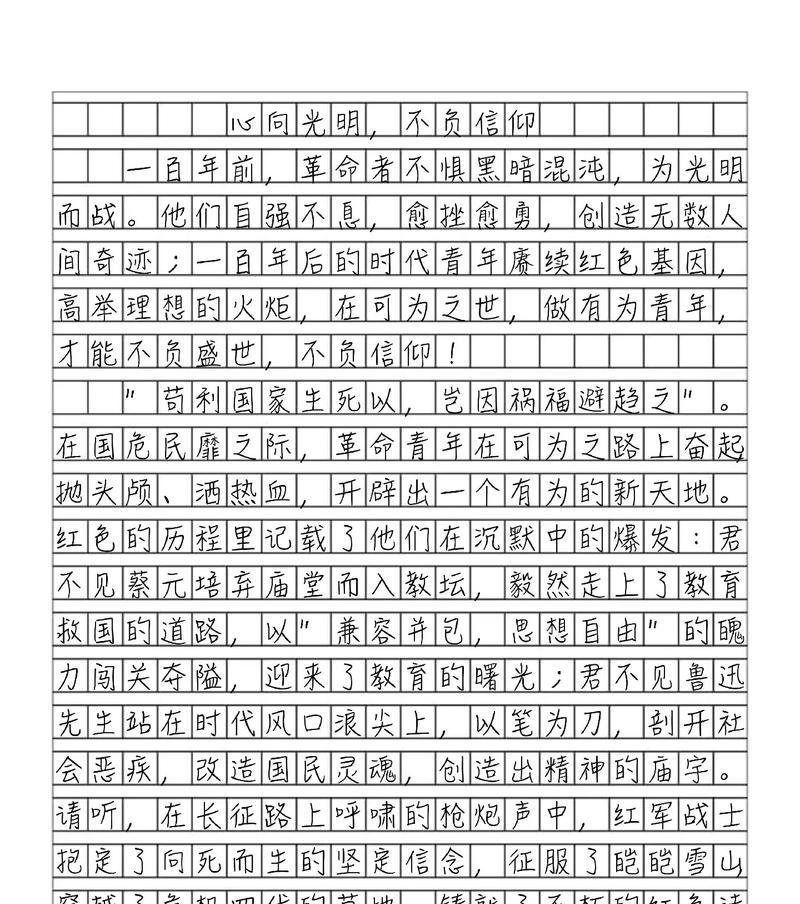 心向光明，不负信仰
一百年前，革命者不惧黑暗混沌，为光明
而战。他们自强不息，愈挫愈勇，创造无数人
间奇迹；一百年后的时代青年赓续红色基因，
高举理想的火炬，在可为之世，做有为青年，
才能不负盛世，不负信仰！
"苟利国家生死以，岂因祸福避趋之"。
在国危民靡之际，革命青年在可为之路上奋起，
抛头颅、洒热血，开辟出一个有为的新天地。
红色的历程里记载了他们在沉默中的爆发：君
不见蔡元培弃庙堂而入教坛，毅然走上了教育
救国的道路，以"兼容并包，思想自由"的魄
力闯关夺隘，迎来了教育的曙光；君不见鲁迅
先生站在时代风口浪尖上，以笔为刀，剖开社
会恶疾，改造国民灵魂，创造出精神的庙宇。
请听，在长征路上呼啸的枪炮声中，红军战士
抱定了向死而生的坚定信念，征服了皑皑雪山，